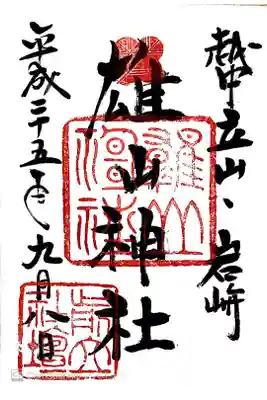 越中立山、岩峅
雄山神社
平成二十五年九月八日
雄山
神社
前立
社壇